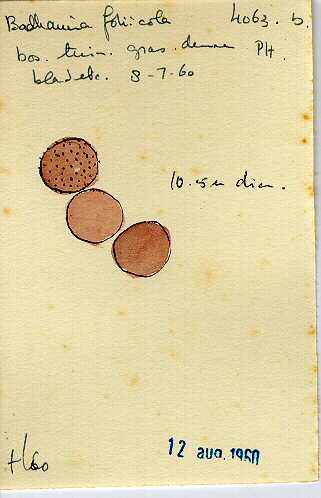 Badhamia foliicola 4063. b.
bos. tuin. gras. denne PH.
blad etc. 8-7-60
10.5 u diam.
12 aug. 1960